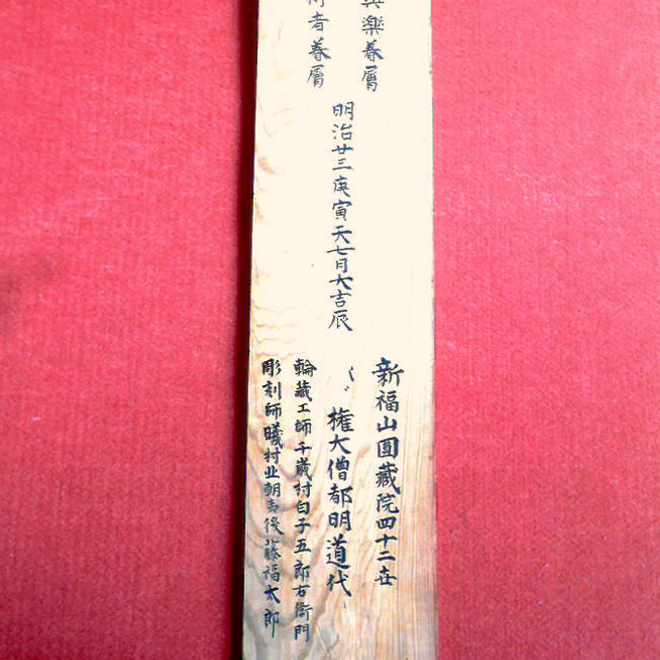 樂眷属
者眷属
明治廿三庚寅天七月大吉辰
新福山圓藏院四十二世
権大僧都明道代
輪藏工師千歳村白子五郎右衛門
彫刻師 北朝夷後藤福太郎